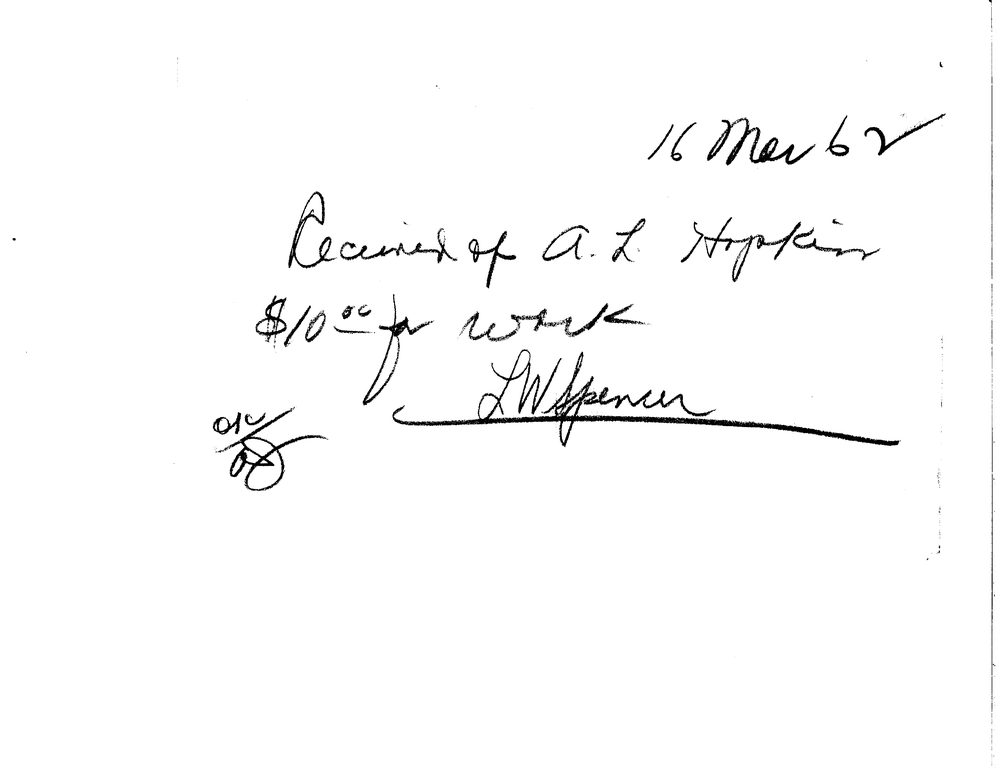 16 Mar 62
Received of A. L. Hopkins
$10.00 for work
LW Spencer